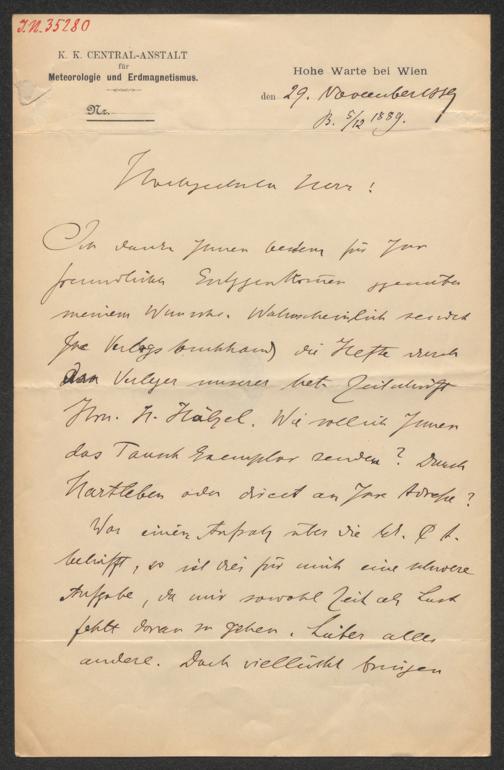 J.N. 35280
K. K. CENTRAL-ANSTALT
für
Meteorologie und Erdmagnetismus.
Nr.
Hohe Warte bei Wien
den 29. November 1889
B. 5/12 1889.
Hochgeehrter Herr!
Ich danke Ihnen bestens für Ihr
freundliches Entgegenkommen gegenüber
meinem Wunsche. Wahrscheinlich sendet
Ihre Verlagsbuchhand) die Hefte durch
den Verleger unserer met. Zeitschrift
Hrn. H. Hölzel. Wie soll ich Ihnen
das Tausch Exemplar senden? Durch
Hartleben oder direct an Ihre Adresse?
Was einen Aufsatz über die
betrifft, so ist dies für mich eine schwere
Aufgabe, da mir sowohl Zeit als Lust
fehlt daran zu gehen. Lieber alles
andere. Doch vielleicht bringen